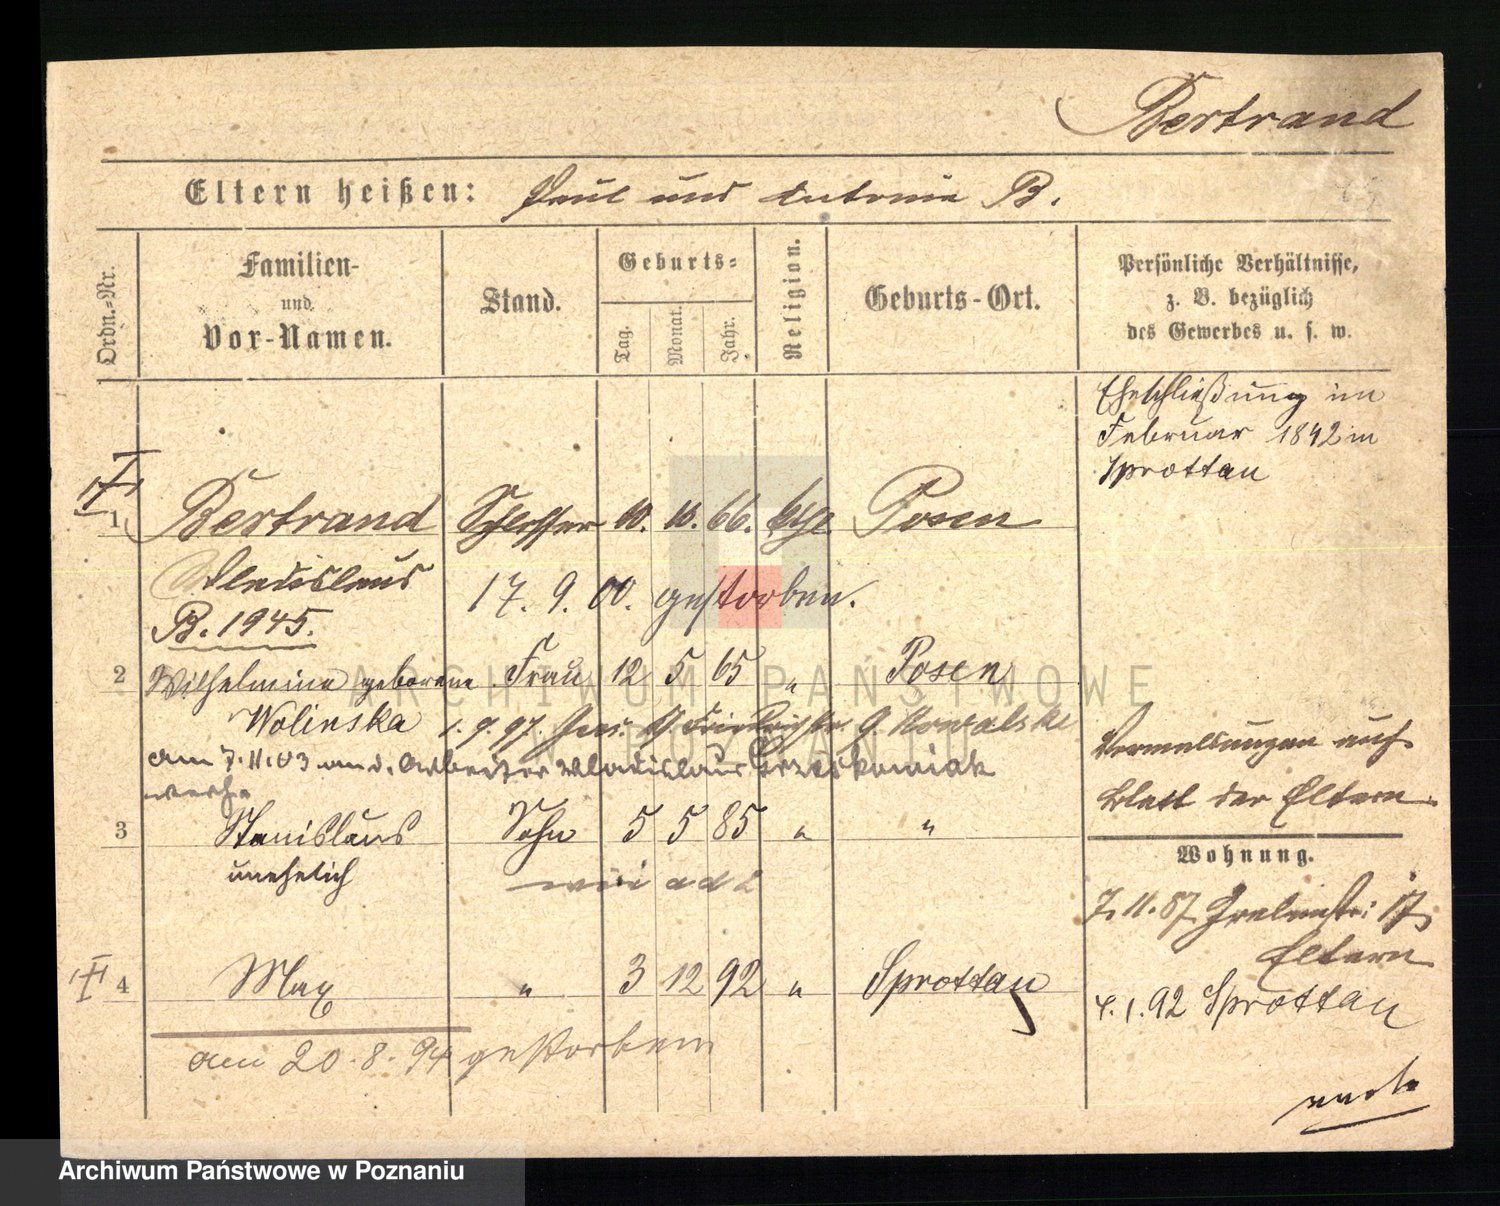 Bertrand
Eltern heißen: Paul und Antonie B.
Ordn.-Nr.
Familien-
und
Vor-Namen.
Stand.
Geburts-
Tag.
Monat.
Jahr.
Religion.
Geburts-Ort.
Persönliche Verhältnisse,
z. B. bezüglich
des Gewerbes u. s. w.
Eheschließung im
Februar 1892 in
Sprottau
1 Bertrand Schlosser 10. 10. 66. kth. Posen
Wladislaus
B. 1945.
17. 9. 00. gestorben.
2 Wilhelmine geborene Frau 12 5 65 " Posen
Wolinska 1. 9. 97. G. Kowalski
am 7.11.03 an d. Arbeiter Wladislaus
verh.
3 Stanislaus Sohn 5 5 85 " "
unehelich wie ad 2
4 Max " 3 12 92 " Sprottau
am 20.8.94 gestorben
Vermeldungen auf
Blatt der Eltern.
Wohnung.
7.11.87 17
Eltern
4.1.92 Sprottau
ARCHIWUM PAŃSTWOWE
W POZNANIU
Archiwum Państwowe w Poznaniu